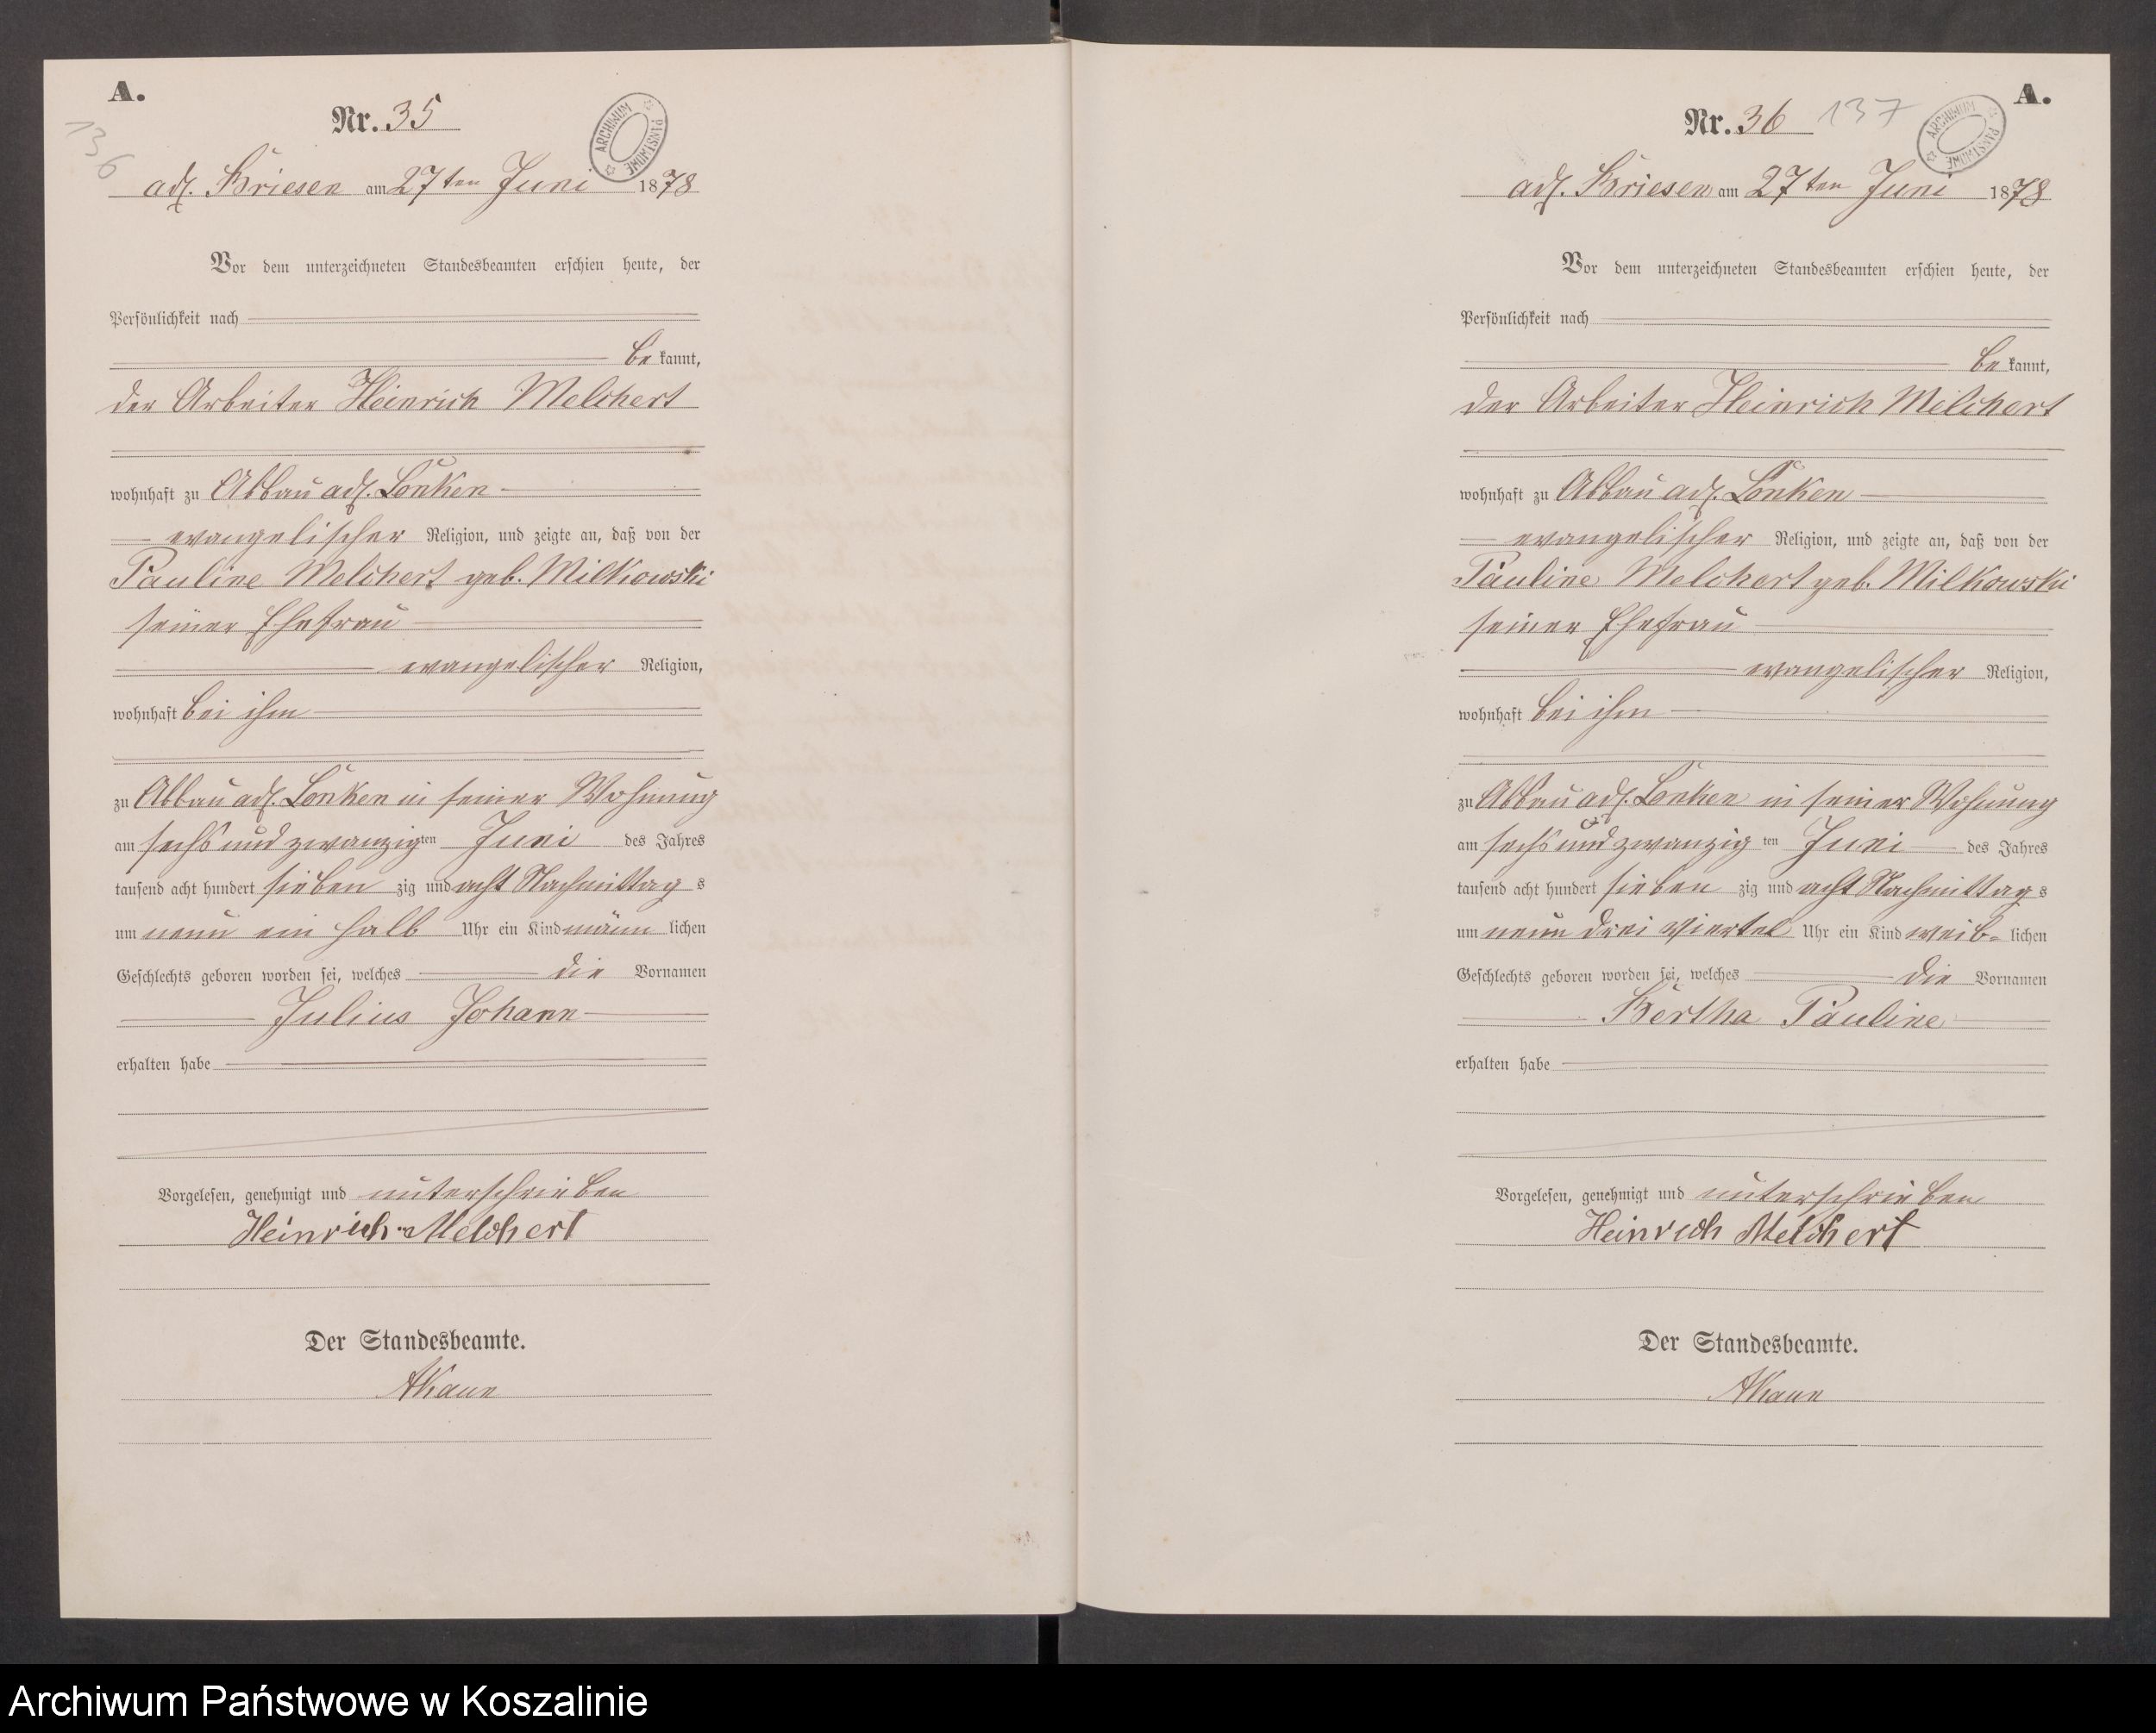 A.
Nr. 35
136
ARCHIWUM PAŃSTWOWE
adl. Briesen am 27ten Juni 1878
Vor dem unterzeichneten Standesbeamten erschien heute, der
Persönlichkeit nach
bekannt,
der Arbeiter Heinrich Melchert
wohnhaft zu Abbau adl. Lonken
evangelischer Religion, und zeigte an, daß von der
Pauline Melchert geb. Milkowski
seiner Ehefrau
evangelischer Religion,
wohnhaft bei ihm
zu Abbau adl. Lonken in seiner Wohnung
am sechs und zwanzigten Juni des Jahres
tausend acht hundert siebenzig und acht Nachmittags
um neun ein halb Uhr ein Kind männlichen
Geschlechts geboren worden sei, welches die Vornamen
Julius Johann
erhalten habe
Vorgelesen, genehmigt und unterschrieben
Heinrich Melchert
Der Standesbeamte.
A.
Nr. 36 137
ARCHIWUM PAŃSTWOWE
adl. Briesen am 27ten Juni 1878
Vor dem unterzeichneten Standesbeamten erschien heute, der
Persönlichkeit nach
bekannt,
der Arbeiter Heinrich Melchert
wohnhaft zu Abbau adl. Lonken
evangelischer Religion, und zeigte an, daß von der
Pauline Melchert geb. Milkowski
seiner Ehefrau
evangelischer Religion,
wohnhaft bei ihm
zu Abbau adl. Lonken in seiner Wohnung
am sechs und zwanzigten Juni des Jahres
tausend acht hundert siebenzig und acht Nachmittags
um neun drei viertel Uhr ein Kind weib-lichen
Geschlechts geboren worden sei, welches die Vornamen
Bertha Pauline
erhalten habe
Vorgelesen, genehmigt und unterschrieben
Heinrich Melchert
Der Standesbeamte.
Archiwum Państwowe w Koszalinie